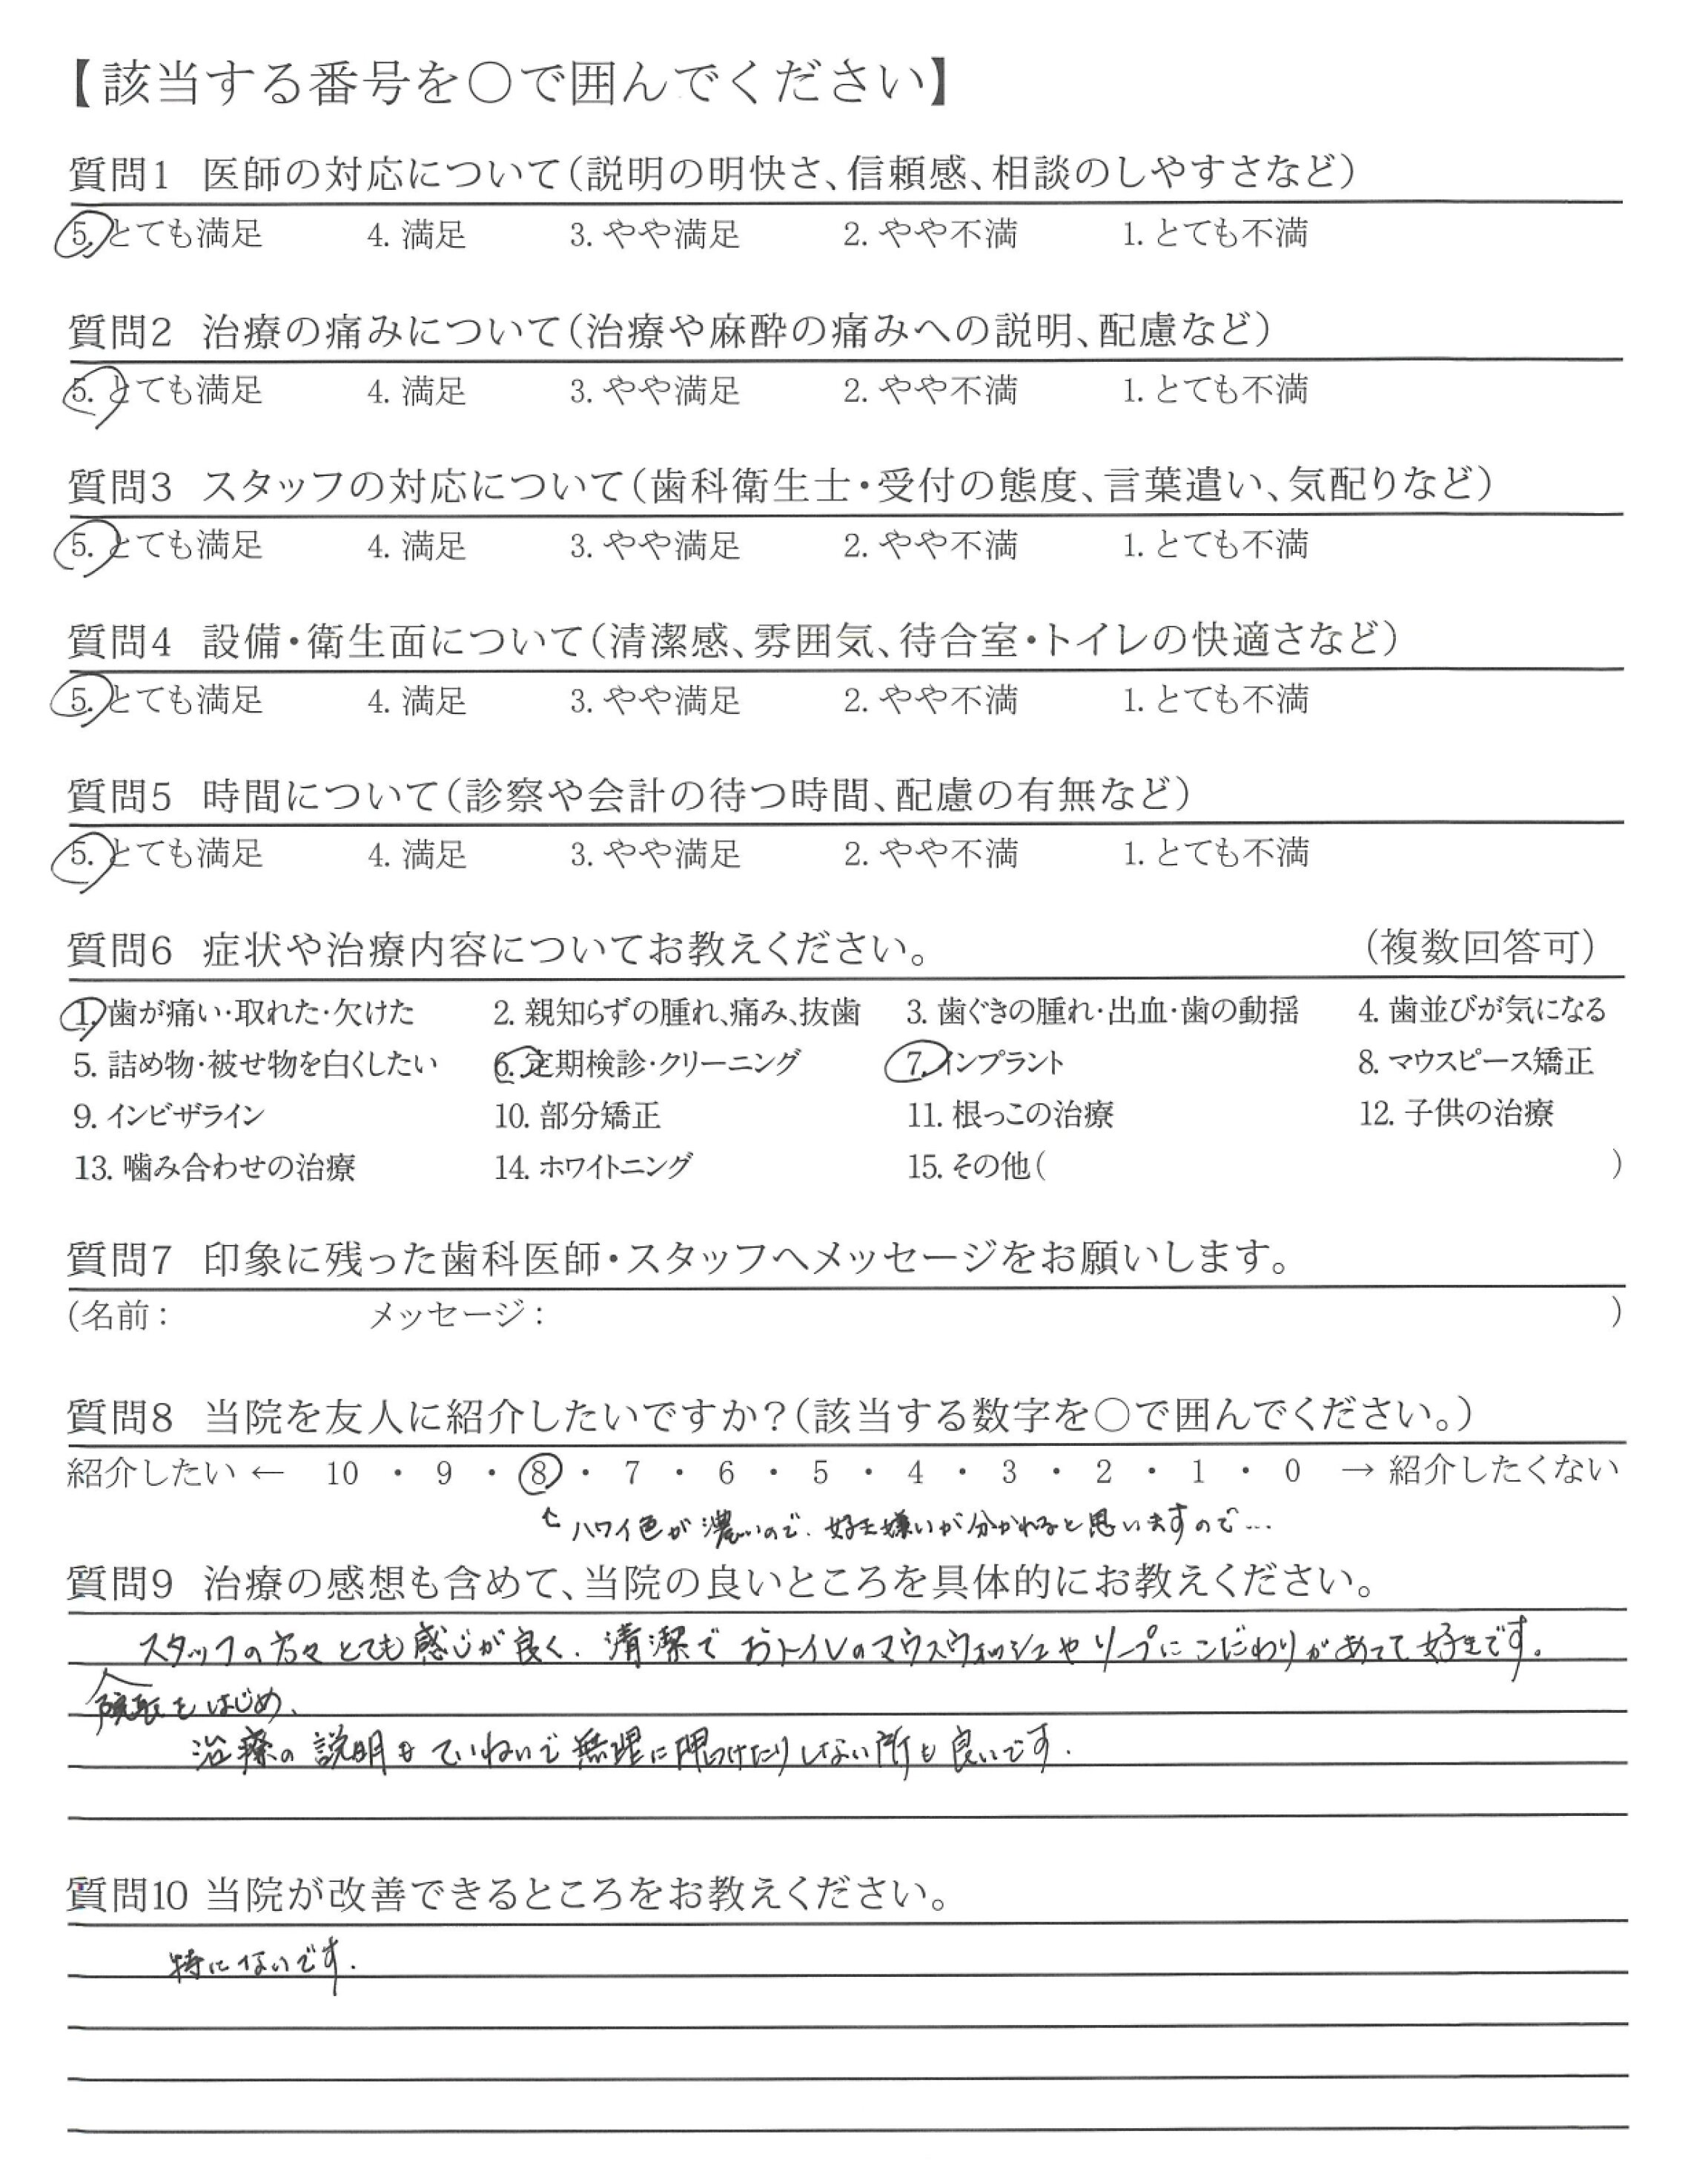 【該当する番号を○で囲んでください】
質問1 医師の対応について(説明の明快さ、信頼感、相談のしやすさなど)
5. とても満足 4. 満足 3. やや満足 2. やや不満 1. とても不満
質問2 治療の痛みについて(治療や麻酔の痛みへの説明、配慮など)
5. とても満足 4. 満足 3. やや満足 2. やや不満 1. とても不満
質問3 スタッフの対応について(歯科衛生士・受付の態度、言葉遣い、気配りなど)
5. とても満足 4. 満足 3. やや満足 2. やや不満 1. とても不満
質問4 設備・衛生面について(清潔感、雰囲気、待合室・トイレの快適さなど)
5. とても満足 4. 満足 3. やや満足 2. やや不満 1. とても不満
質問5 時間について(診察や会計の待つ時間、配慮の有無など)
5. とても満足 4. 満足 3. やや満足 2. やや不満 1. とても不満
質問6 症状や治療内容についてお教えください。 (複数回答可)
1. 歯が痛い・取れた・欠けた 2. 親知らずの腫れ、痛み、抜歯 3. 歯ぐきの腫れ・出血・歯の動揺 4. 歯並びが気になる
5. 詰め物・被せ物を白くしたい 6. 定期検診・クリーニング 7. インプラント 8. マウスピース矯正
9. インビザライン 10. 部分矯正 11. 根っこの治療 12. 子供の治療
13. 噛み合わせの治療 14. ホワイトニング 15. その他( )
質問7 印象に残った歯科医師・スタッフへメッセージをお願いします。
(名前: メッセージ: )
質問8 当院を友人に紹介したいですか?(該当する数字を○で囲んでください。)
紹介したい ← 10 ・ 9 ・ 8 ・ 7 ・ 6 ・ 5 ・ 4 ・ 3 ・ 2 ・ 1 ・ 0 → 紹介したくない
ハワイ色が濃いので、好き嫌いが分かれると思いますので…
質問9 治療の感想も含めて、当院の良いところを具体的にお教えください。
スタッフの方々とても感じが良く、清潔でおトイレのマウスウォッシュやソープにこだわりがあって好きです。
院長をはじめ、
治療の説明もていねいで無理に押つけたりしない所も良いです.
質問10 当院が改善できるところをお教えください。
特にないです.